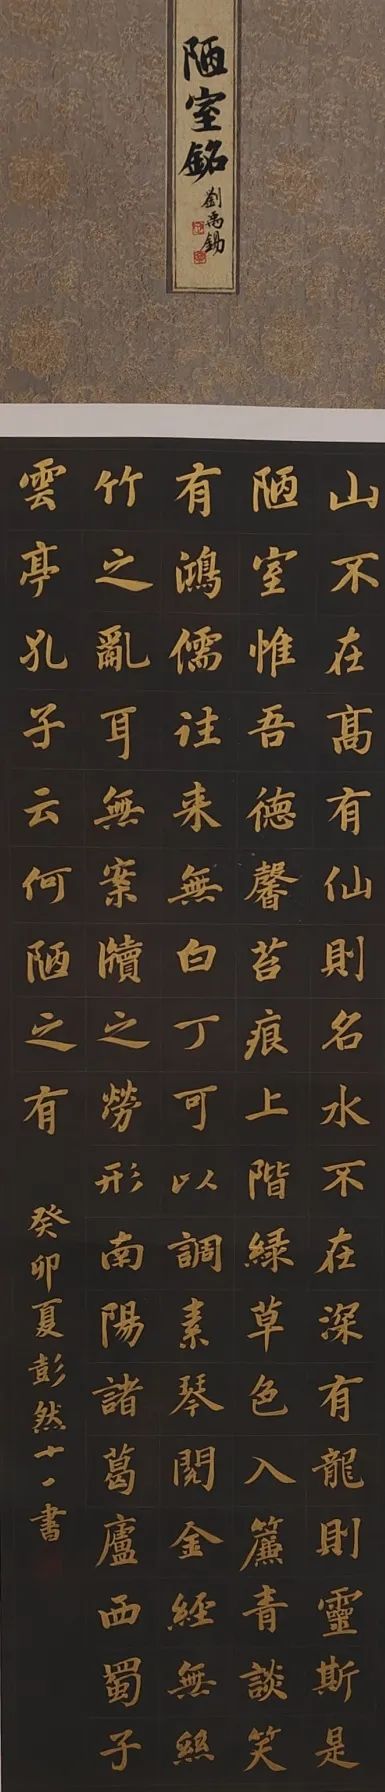 陋室銘
劉禹錫
山不在髙有仙則名水不在深有龍則靈斯是
陋室惟吾德馨苔痕上階緑草色入簾青談笑
有鴻儒往来無白丁可以調素琴閱金經無絲
竹之亂耳無案牘之勞形南陽諸葛廬西蜀子
雲亭孔子云何陋之有
癸卯夏彭然十一書